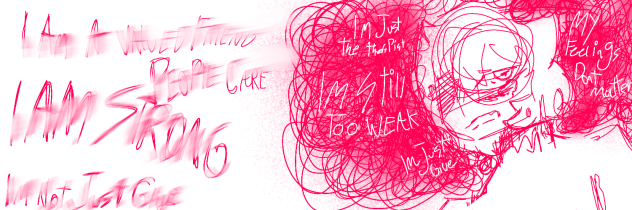 I AM A VALUED FRIEND
PEOPLE CARE
I AM STRONG
I'm Not Just Glue
I'm Just
the therapist
I'm Still
Too WEAK
I'm Just
Glue
My
Feelings
Dont
Matter